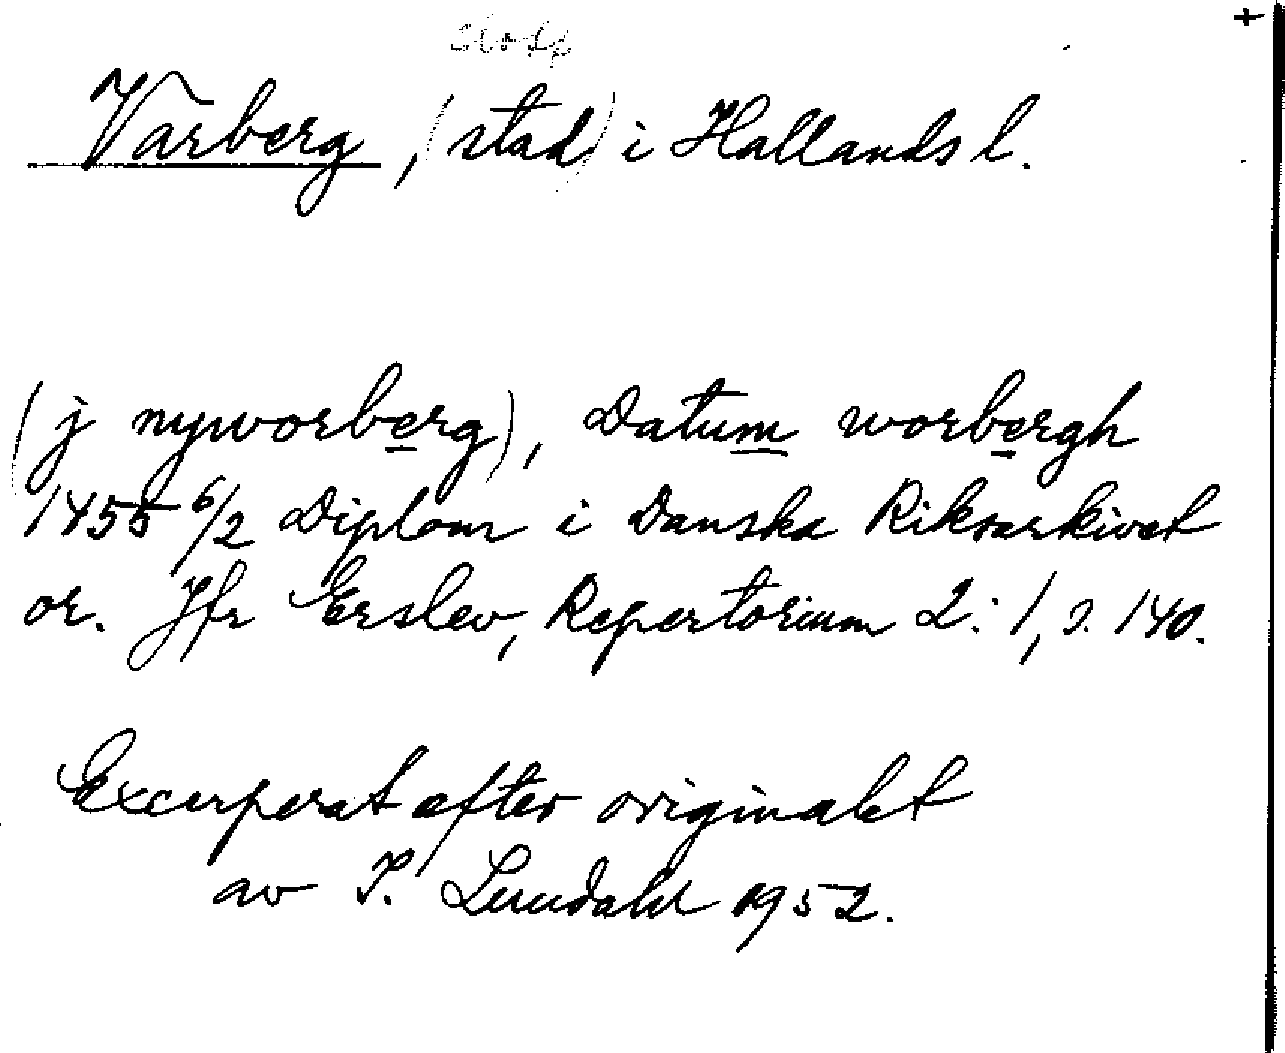 +
slott
Varberg, (stad) i Hallands l.
(j nyworberg), Datum worbergh
1455 6/2 Diplom i Danska Riksarkivet
or. Jfr Erslev, Repertorium 2:1, s. 140.
Excerperat efter originalet
av I. Lundahl 1952.